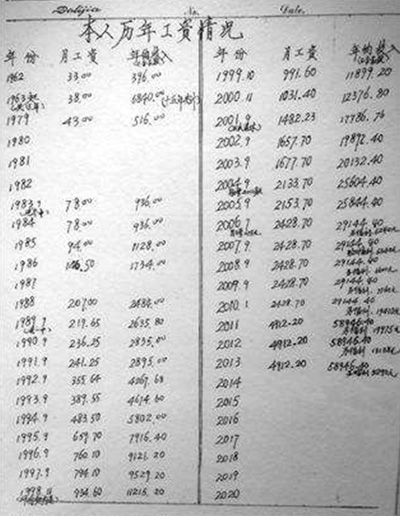 No. Date.
本人历年工资情况
年份 月工资 年均收入
1962 33.00 396.00
1963 38.00 6840.00
1979 43.00 516.00
1980
1981
1982
1983.9 78.00 936.00
1984 78.00 936.00
1985 94.00 1128.00
1986 1734.00
1987
1988 207.00 2484.00
1989.9 219.65 2635.80
1990.9 236.25 2835.00
1991.9 241.25 2895.00
1992.9 355.64 4267.68
1993.9 389.55 4674.60
1994.9 483.50 5802.00
1995.9 659.70 7916.40
1996.9 760.10 9121.20
1997.9 794.10 9529.20
1998.11 934.60 11215.20
年份 月工资 年均收入
1999.10 991.60 11899.20
2000.11 1031.40 12376.80
2001.9 1482.23 17786.76
2002.9 1657.70 19892.40
2003.9 1677.70 20132.40
2004.9 2133.70 25604.40
2005.9 2153.70 25844.40
2006.7 2428.70 29144.40
2007.9 2428.70 29144.40
2008.9 2428.70 29144.40
2009.9 2428.70 29144.40
2010.1 2428.70 29144.40
2011 4912.20 58946.40
2012 4912.20 58946.40
2013 4912.20 58946.40
2014
2015
2016
2017
2018
2019
2020